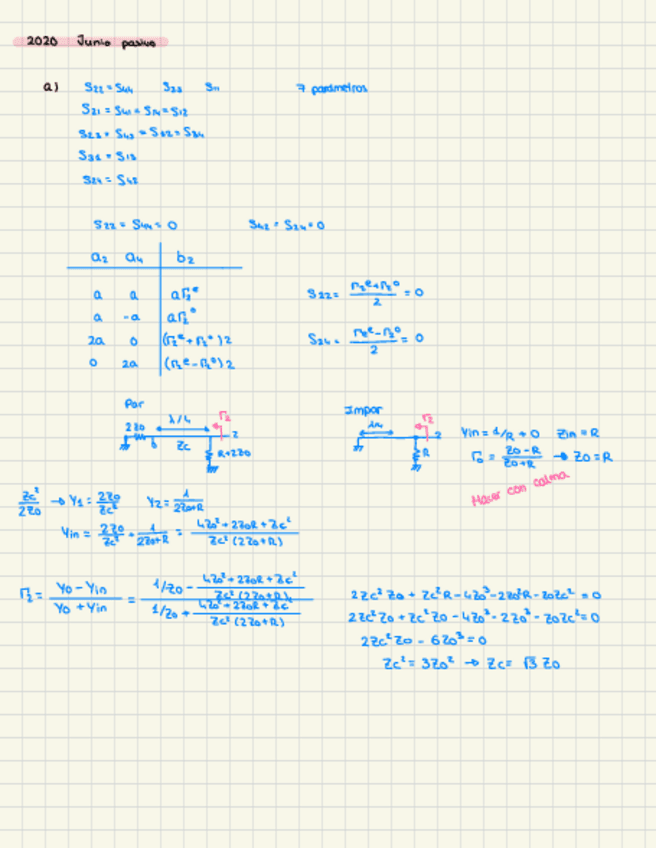 2020 Junio pasivo
a) S22 = S44 S33 S11 7 parámetros
S21 = S41 = S14 = S12
S23 = S43 = S32 = S34
S31 = S13
S24 = S42
S22 = S44 = 0 S42 = S24 = 0
a2 a4 b2
a a aΓ2ᵉ
a -a aΓ2⁰
2a 0 (Γ2ᵉ + Γ2⁰) 2
0 2a (Γ2ᵉ - Γ2⁰) 2
S22 = (Γ2ᵉ + Γ2⁰)/2 = 0
S24 = (Γ2ᵉ - Γ2⁰)/2 = 0
Par
2Z0 λ/4 Γ2
Zc 2
R+2Z0
Impar
λ/4 Γ2
2
R
Yin = 1/R + 0 Zin = R
Γ0 = (Z0 - R)/(Z0 + R) → Z0 = R
Hacer con calma
Zc²/2Z0 → Y1 = 2Z0/Zc² Y2 = 1/(2Z0+R)
Yin = 2Z0/Zc² + 1/(2Z0+R) = (4Z0² + 2Z0R + Zc²)/(Zc² (2Z0+R))
Γ2 = (Y0 - Yin)/(Y0 + Yin) = (1/Z0 - (4Z0² + 2Z0R + Zc²)/(Zc² (2Z0+R)))/(1/Z0 + (4Z0² + 2Z0R + Zc²)/(Zc² (2Z0+R)))
2Zc² Z0 + Zc² R - 4Z0³ - 2Z0²R - Z0Zc² = 0
2Zc² Z0 + Zc² Z0 - 4Z0³ - 2Z0³ - Z0Zc² = 0
2Zc² Z0 - 6Z0³ = 0
Zc² = 3Z0² → Zc = √3 Z0